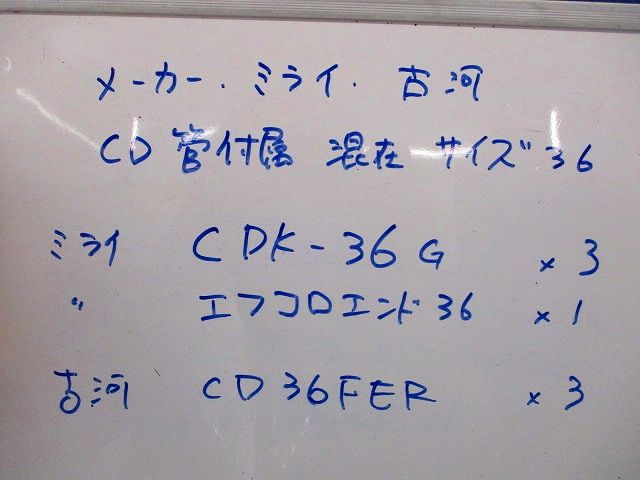 メーカー. ミライ. 古河
CD 管付属 混在 サイズ 36
ミライ CDK-36G ×3
〃 エフコロエンド36 ×1
古河 CD36FER ×3